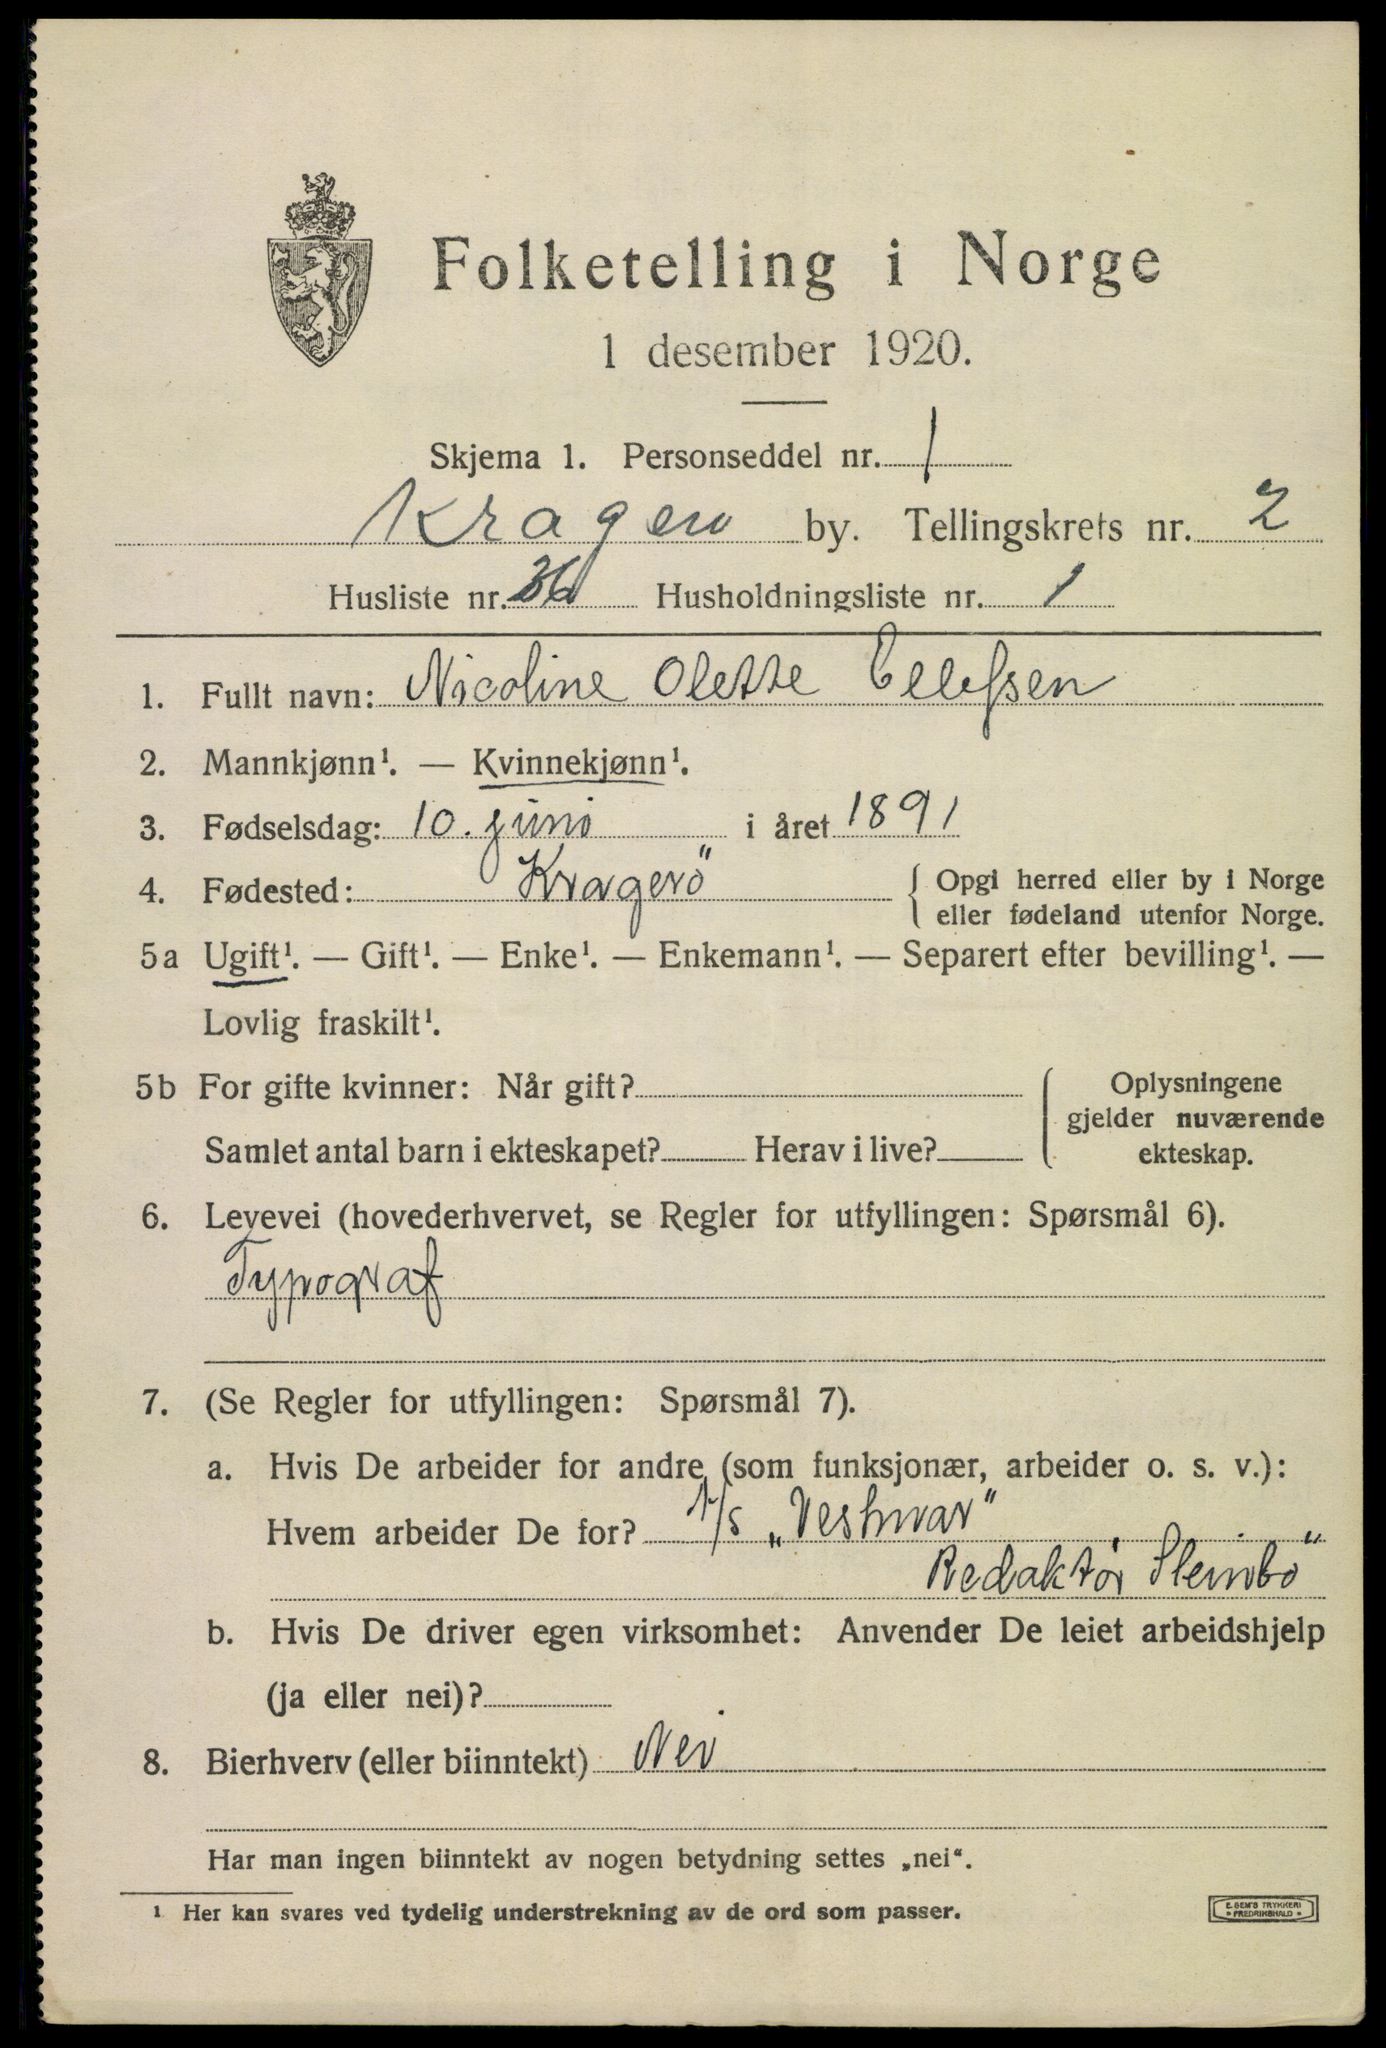 Folketelling i Norge
1 desember 1920.
Skjema 1. Personseddel nr. 1
Kragerø by. Tellingskrets nr. 2
Husliste nr. 36 Husholdningsliste nr. 1
1. Fullt navn: Nicoline Olette Ellefsen
2. Mannkjønn¹. — Kvinnekjønn¹.
3. Fødselsdag: 10. juni i året 1891
4. Fødested: Kragerö { Opgi herred eller by i Norge
eller fødeland utenfor Norge.
5a Ugift¹. — Gift¹. — Enke¹. — Enkemann¹. — Separert efter bevilling¹. —
Lovlig fraskilt¹.
5b For gifte kvinner: Når gift? Oplysningene
gjelder nuværende
Samlet antal barn i ekteskapet? Herav i live? ekteskap.
6. Levevei (hovederhvervet, se Regler for utfyllingen: Spørsmål 6).
Typograf
7. (Se Regler for utfyllingen: Spørsmål 7).
a. Hvis De arbeider for andre (som funksjonær, arbeider o. s. v.):
Hvem arbeider De for? A/S „Vestmar"
Redaktør Stenbo"
b. Hvis De driver egen virksomhet: Anvender De leiet arbeidshjelp
(ja eller nei)?
8. Bierhverv (eller biinntekt) Nei
Har man ingen biinntekt av nogen betydning settes „nei".
¹ Her kan svares ved tydelig understrekning av de ord som passer.
E. SEM'S TRYKKERI
* FREDRIKSHALD *